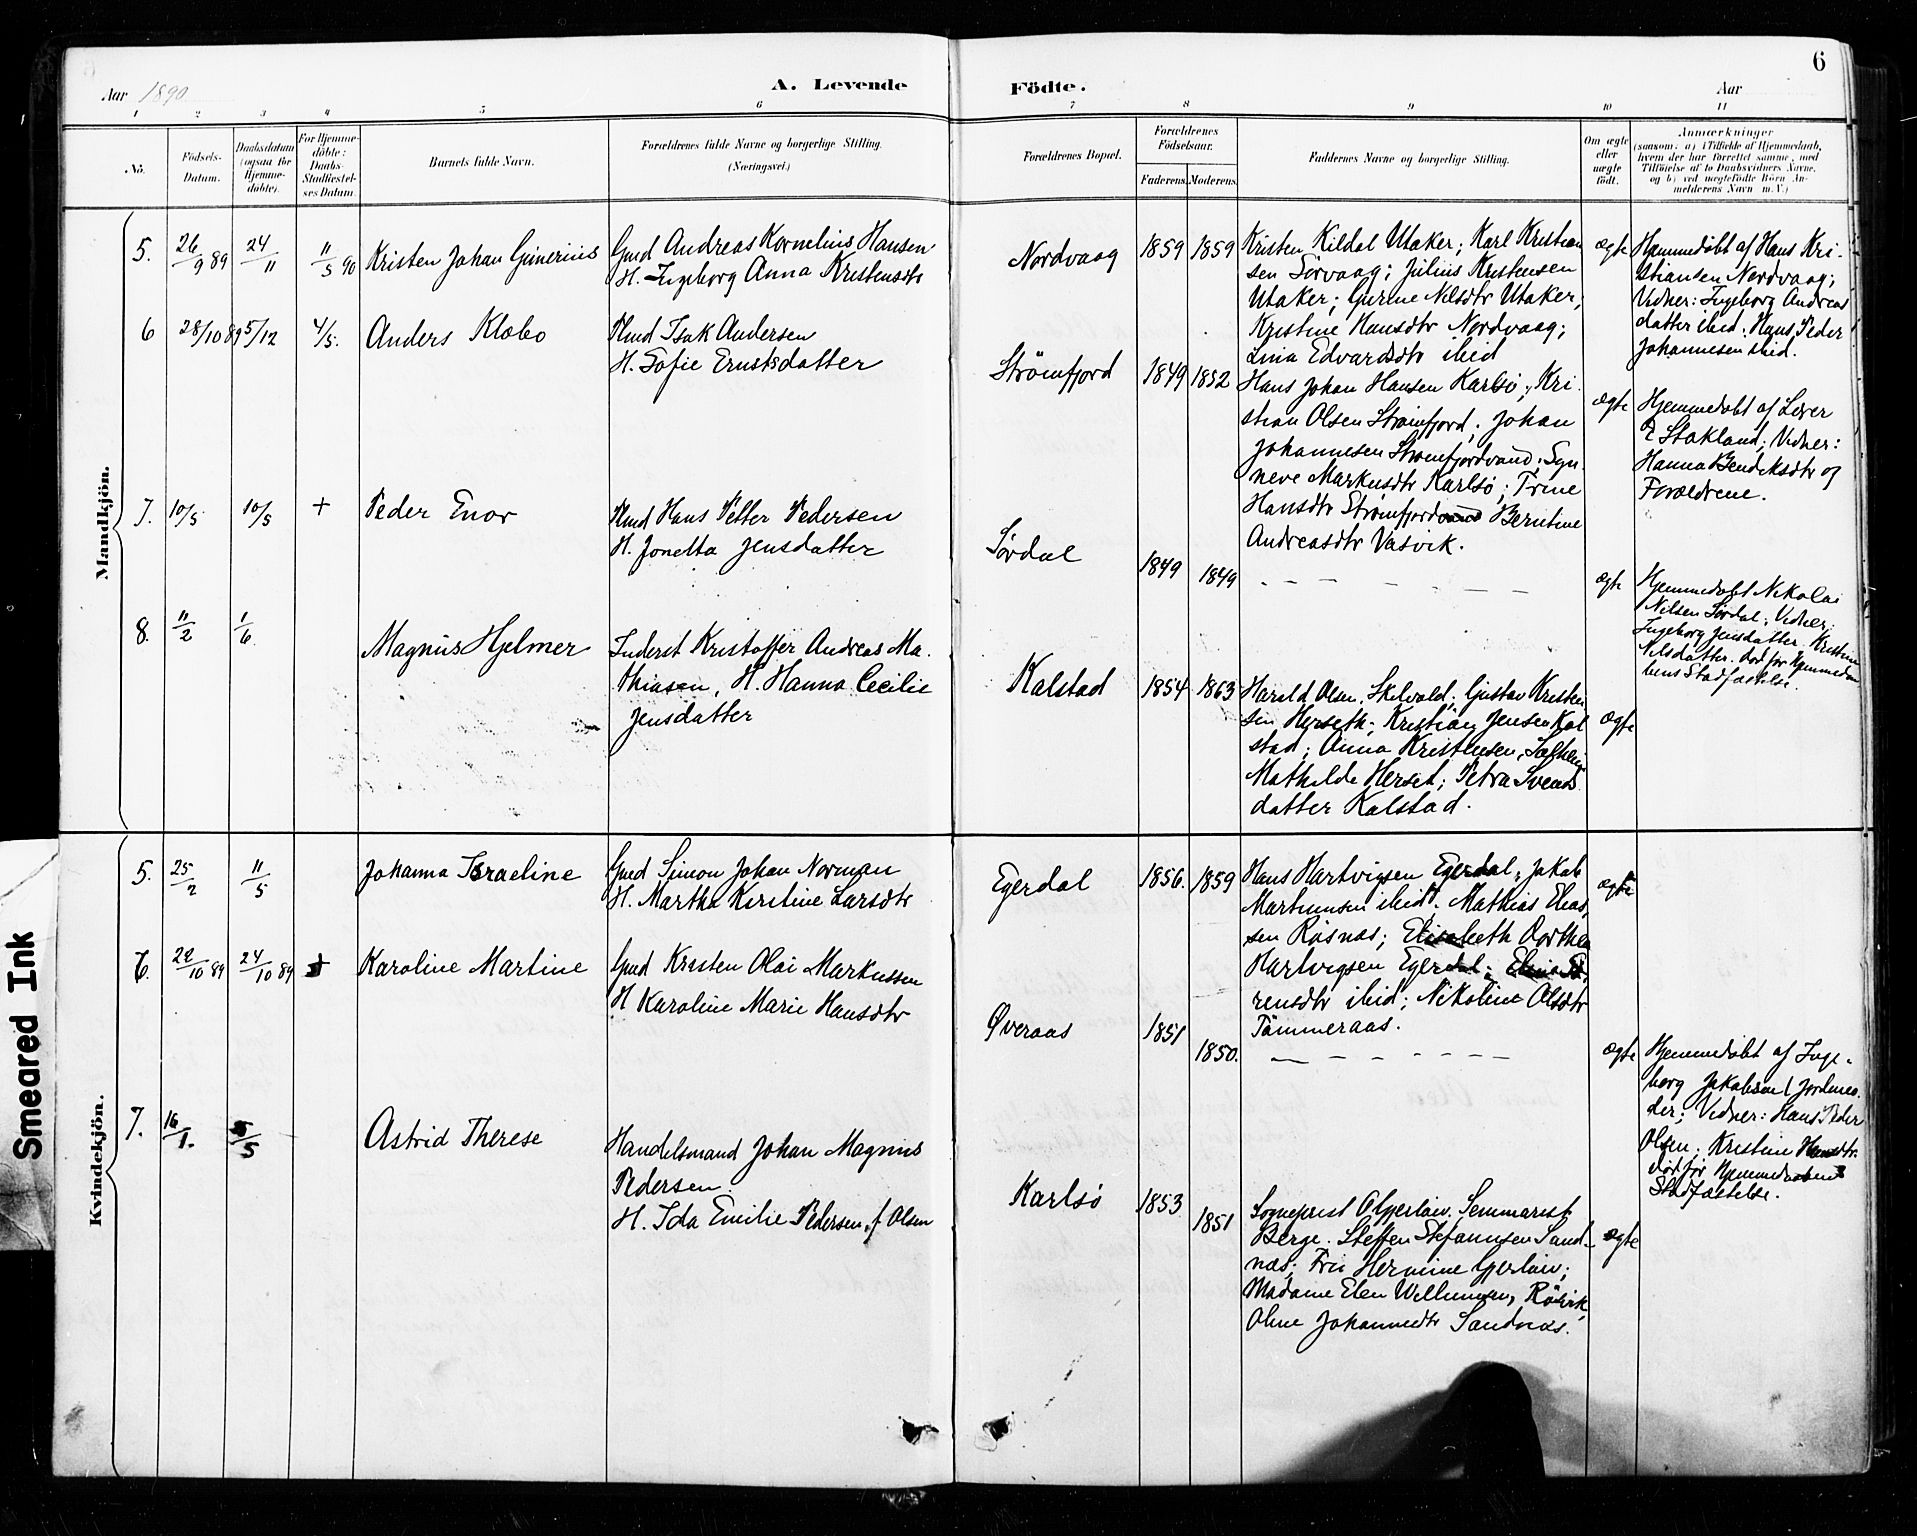 6
Aar 1890
A. Levende
Födte.
Aar
1 2 3 4 5 6 7 8 9 10 11
No.
Födsels-
Datum.
Daabsdatum
(ogsaa for
Hjemme-
döbte).
For Hjemme-
döbte:
Daabs-
Stadfæstel-
ses Datum.
Barnets fulde Navn.
Forældrenes fulde Navne og borgerlige Stilling.
(Næringsvei.)
Forældrenes Bopæl.
Forældrenes
Födselsaar.
Faderens. Moderens.
Faddernes Navne og borgerlige Stilling.
Om ægte
eller
uægte
födt.
Anmærkninger
(saasom: a) i Tilfælde af Hjemmedaab,
hvem der har forrettet samme, med
Tilföielse af to Daabsvidners Navne,
og b) ved uægtefödte Börn An-
melderens Navn m. V.)
Mandkjön.
5. 26/9 89 24/11 11/5 90 Kristen Johan Gunerius
Gmd Andreas Kornelius Hansen
H. Ingeborg Anna Kristensdtr
Nordvaag 1859 1859
Kristen Kildal Utaker; Karl Kristian
sen Sörvaag; Julius Kristensen
Utaker; Gurine Nilsdtr Utaker;
Kristine Hansdtr Nordvaag;
Lina Edvardsdtr ibid
ægte
Hjemmedøbt af Hans Kri-
stiansen Nordvaag;
Vidner: Ingeborg Andreas
datter ibid; Hans Peder
Johannesen ibid.
6 28/10 89 5/12 4/5. Anders Klæbo
Plmd Isak Andersen
H. Sofie Ernstsdatter
Strömfjord 1849 1852
Hans Johan Hansen Karlsö; Kri
stian Olsen Strömfjord; Johan
Johannesen Strömfjordvand; Syn
neve Markusdtr Karlsö; Trine
Hansdtr Strömfjord Berntine
Andreasdtr Vasvik.
ægte
Hjemmedöbt af Lærer
E Stakland; Vidner:
Hanna Bendiksdtr og
Forældrene.
7. 10/5 10/5 + Peder Enor
Plmd Hans Petter Pedersen
H. Jonetta Jensdatter
Sördal 1849 1849
– – – – – –
ægte
Hjemmedöbt Nikolai
Nilsen Sördal; Vidner;
Ingeborg Jensdatter. Kristine
Nilsdatter. død før Hjemmedaa
bens Stadfæstelse.
8. 11/2 1/6. Magnus Hjelmer
Inderst Kristoffer Andreas Ma-
thiasen, H. Hanna Cecilie
Jensdatter
Kalstad 1854 1863
Harald Olsen. Skilvold; Gustav Kristen
sen Herseth; Kristian Jensen Kal
stad; Anna Kristensen,
Mathilde Herset; Petra Svends
datter Kalstad.
ægte
Kvindekjön.
5. 25/2 11/5 Johanna Israeline
Gmd Simon Johan Norman
H. Martha Kirstine Larsdtr
Egerdal 1856. 1859
Hans Hartvigsen Egerdal; Jakob
Martinusen ibid. Mathias Elias
sen Rösnæs; Elisabeth Dorthea
Hartvigsen Egerdal;
rensdtr ibid; Nikoline Olsdtr
Tömmeraas.
ægte
6. 22/10 89 24/10 89 + Karoline Martine
Gmd Kristen Olai Markussen
H Karoline Marie Hansdtr
Øveraas 1851 1850.
– – – – – – –
ægte
Hjemmedöbt af Inge-
borg Jakobsen (Jordemo-
der; Vidner: Hans Peder
Olsen; Kristine Hansdtr.
död før Hjemmedaabens
Stadfæstelse.
7. 16/1. 5/5 Astrid Therese
Handelsmand Johan Magnus
Pedersen.
H. Ida Emilie Pedersen, f. Olsen
Karlsö 1853 1851
Sogneprest O Gjerløw. Semmarist
Berge. Steffen Stefanusen Sand-
næs; Fru Hermine Gjerløw;
Madame Elen Willumsen, Rösvik,
Oline Johannesdtr Sandnæs.
ægte
Smeared Ink